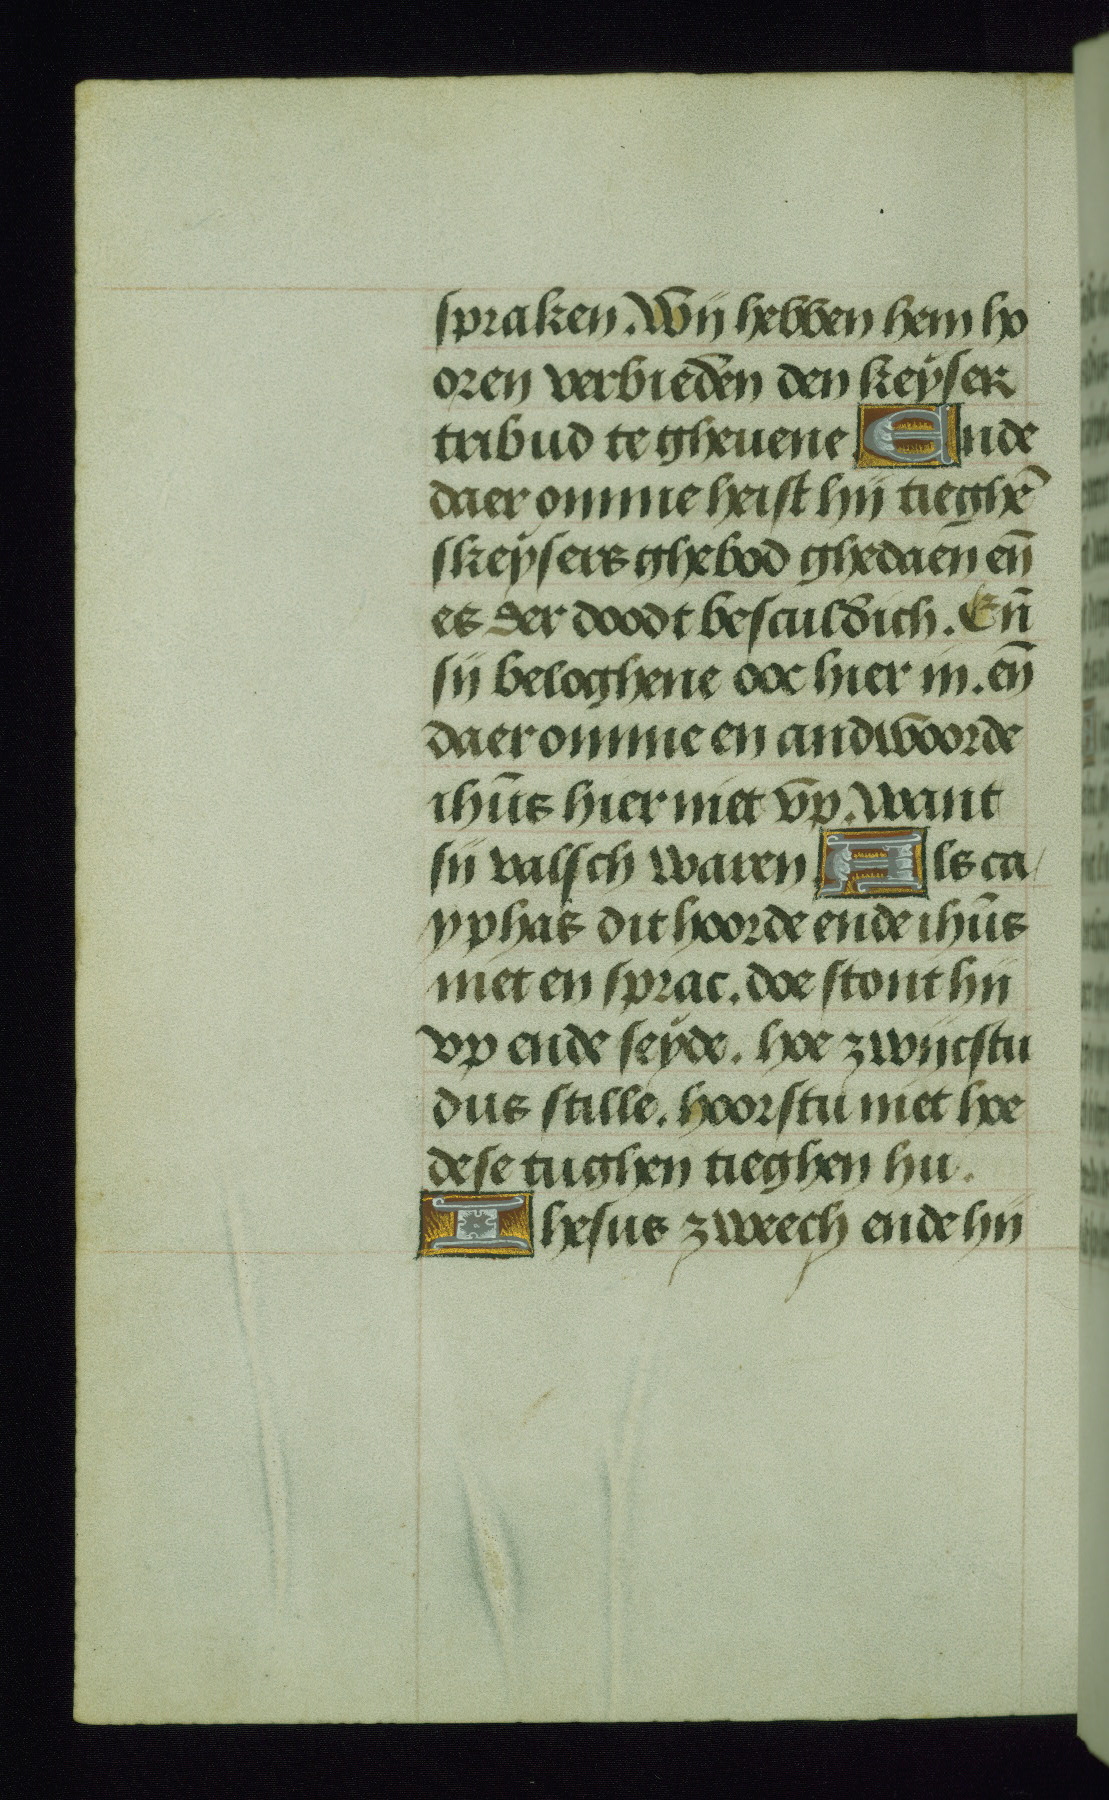 spraken. Wij hebben hem ho
oren verbieden den keyser
tribud te gheuene Ende
daer omme heist hij tieghē
skeysers ghebod ghedaen en̄
es der doodt besculdich. En̄
sij beloghene ooc hier in. en̄
daer omme en andwoorde
ihūs hier niet vp. Want
sij valsch waren Als ca/
yphas dit hoorde ende ihūs
niet en sprac. doe stont hij
vp ende seyde. hoe zwijcstu
dus stille. hoorstu niet hoe
dese tughen tieghen hu.
Ihesus zweech ende hij